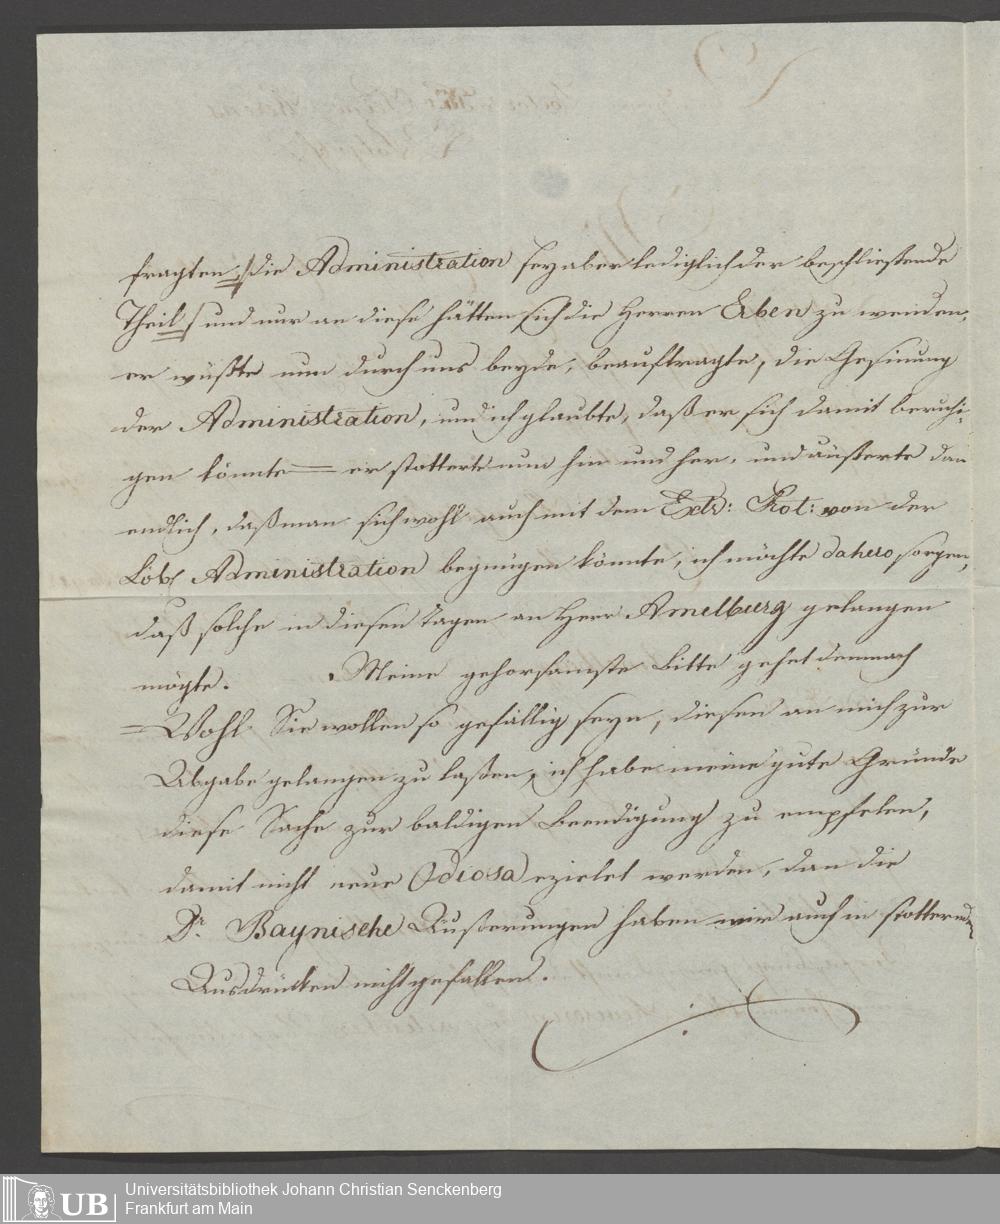 fragten, /:die Administration sey aber lediglich der beschließende
Theil:/ und nur an diese hätten sich die Herren Erben zu wenden,
er wüßte nun durch uns beyde, beauftragte, die Gesinung
der Administration, und ich glaubte, daß er sich damit beruhi-
gen könnte = er stotterte nun hin und her, und äußerte dan
endlich, daß man sich wohl auch mit dem Extr: Prot: von der
Löbl Administration begnügen könnte, ich möchte dahero sorgen,
daß solche in diesen Tagen an Herr Amelburg gelangen
mögte. Meine gehorsamste Bitte gehet demnach
= Wohl Sie wollen so gefällig seyn, diesen an mich zur
Abgabe gelangen zu laßen, ich habe meine gute Gründe
diese Sache zur baldigen Beendigung zu empfelen,
damit nicht neue Odiosa erzielet werden, dan die
Dr. Baynische Äußerungen haben mir auch in stotternden
Ausdrücken nicht gefallen.
UB
Universitätsbibliothek Johann Christian Senckenberg
Frankfurt am Main